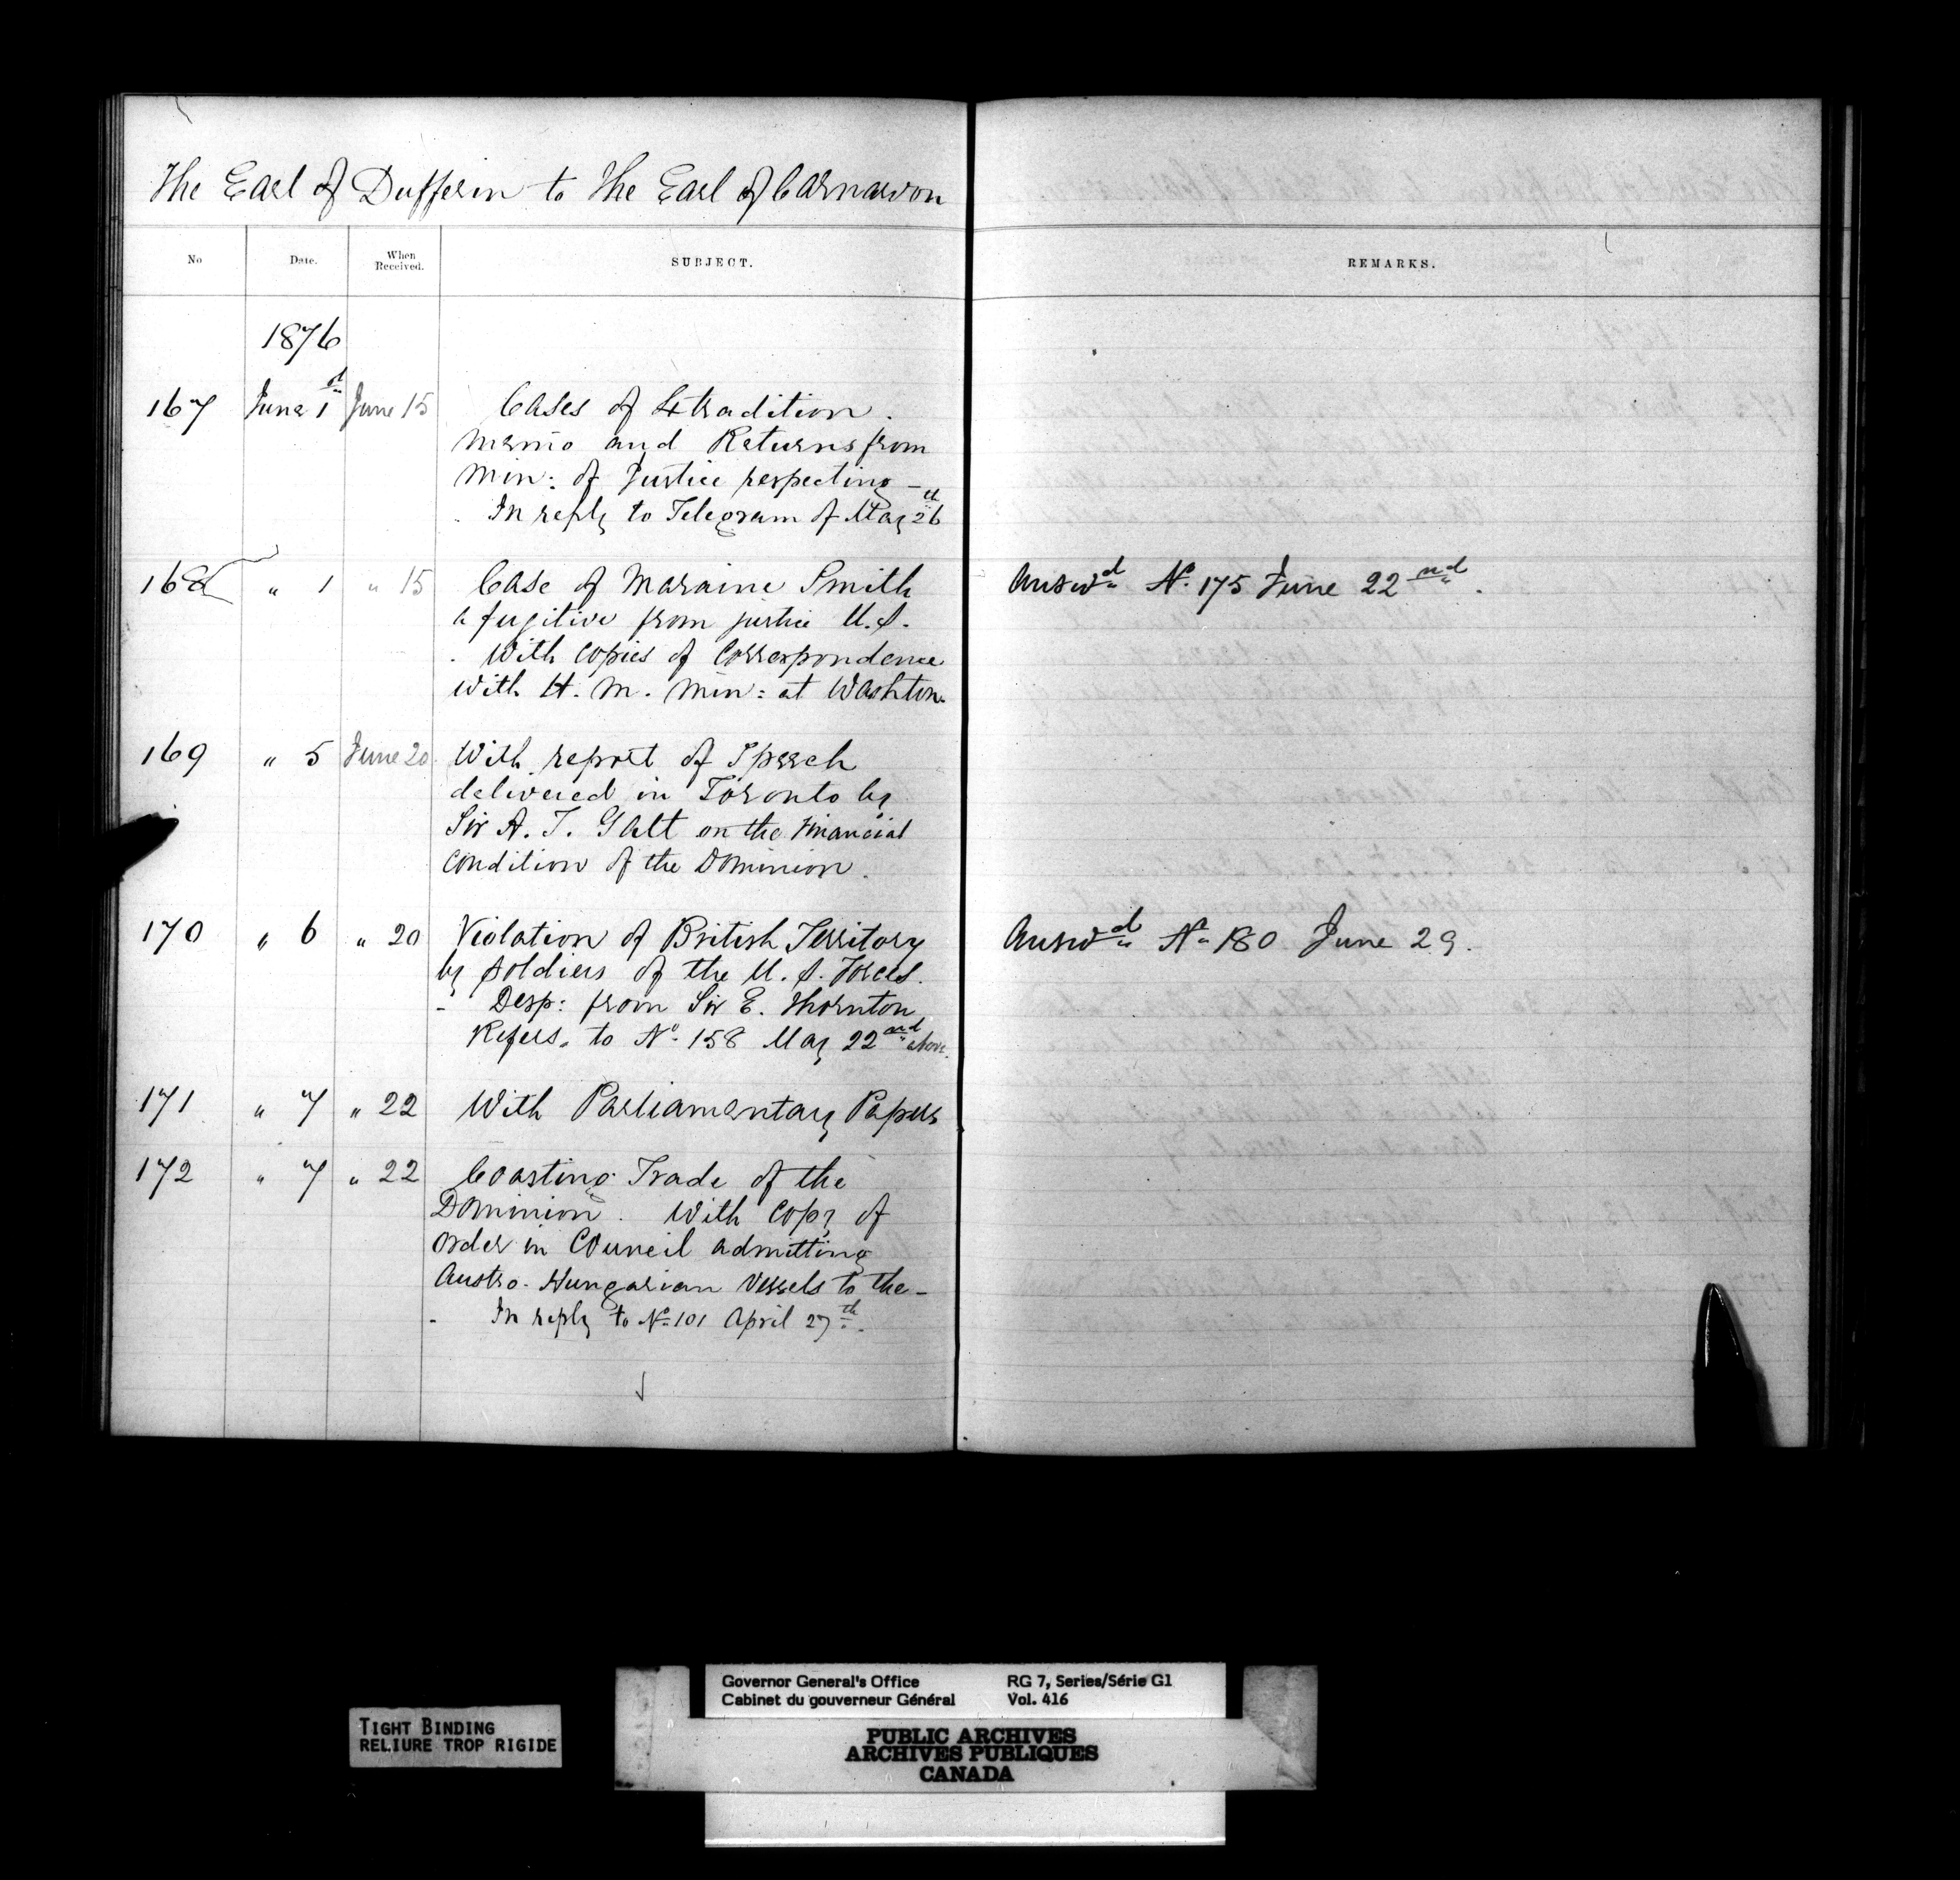 The Earl of Dufferin to The Earl of Carnarvon
No Date. When Received. SUBJECT. REMARKS.
1876
167 June 1d June 15 Cases of Extradition.
Memo and Returns from
Min: of Justice respecting –
In reply to Telegram of May 26th
168 " 1 " 15 Case of Maraine Smith Answd No. 175 June 22nd.
a fugitive from justice U.S.
. With copies of Correspondence
with H. M. Min: at Washton.
169 " 5 June 20 With report of Speech
delivered in Toronto by
Sir A. T. Galt on the Financial
Condition of the Dominion.
170 " 6 " 20 Violation of British Territory Answd No. 180 June 29.
by soldiers of the U. S. Forces.
- Desp: from Sir E. Thornton
Refers. to No. 158 May 22nd above.
171 " 7 " 22 With Parliamentary Papers
172 " 7 " 22 Coasting Trade of the
Dominion. With copy of
Order in Council admitting
Austro-Hungarian Vessels to the –
- In reply to No. 101 April 27th.
TIGHT BINDING
RELIURE TROP RIGIDE
Governor General's Office RG 7, Series/Série G1
Cabinet du gouverneur Général Vol. 416
PUBLIC ARCHIVES
ARCHIVES PUBLIQUES
CANADA